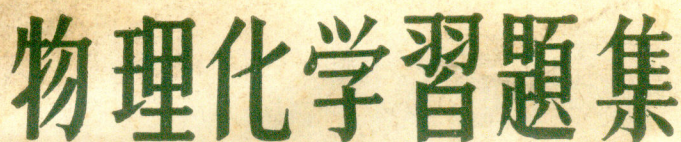 物理化学習題集